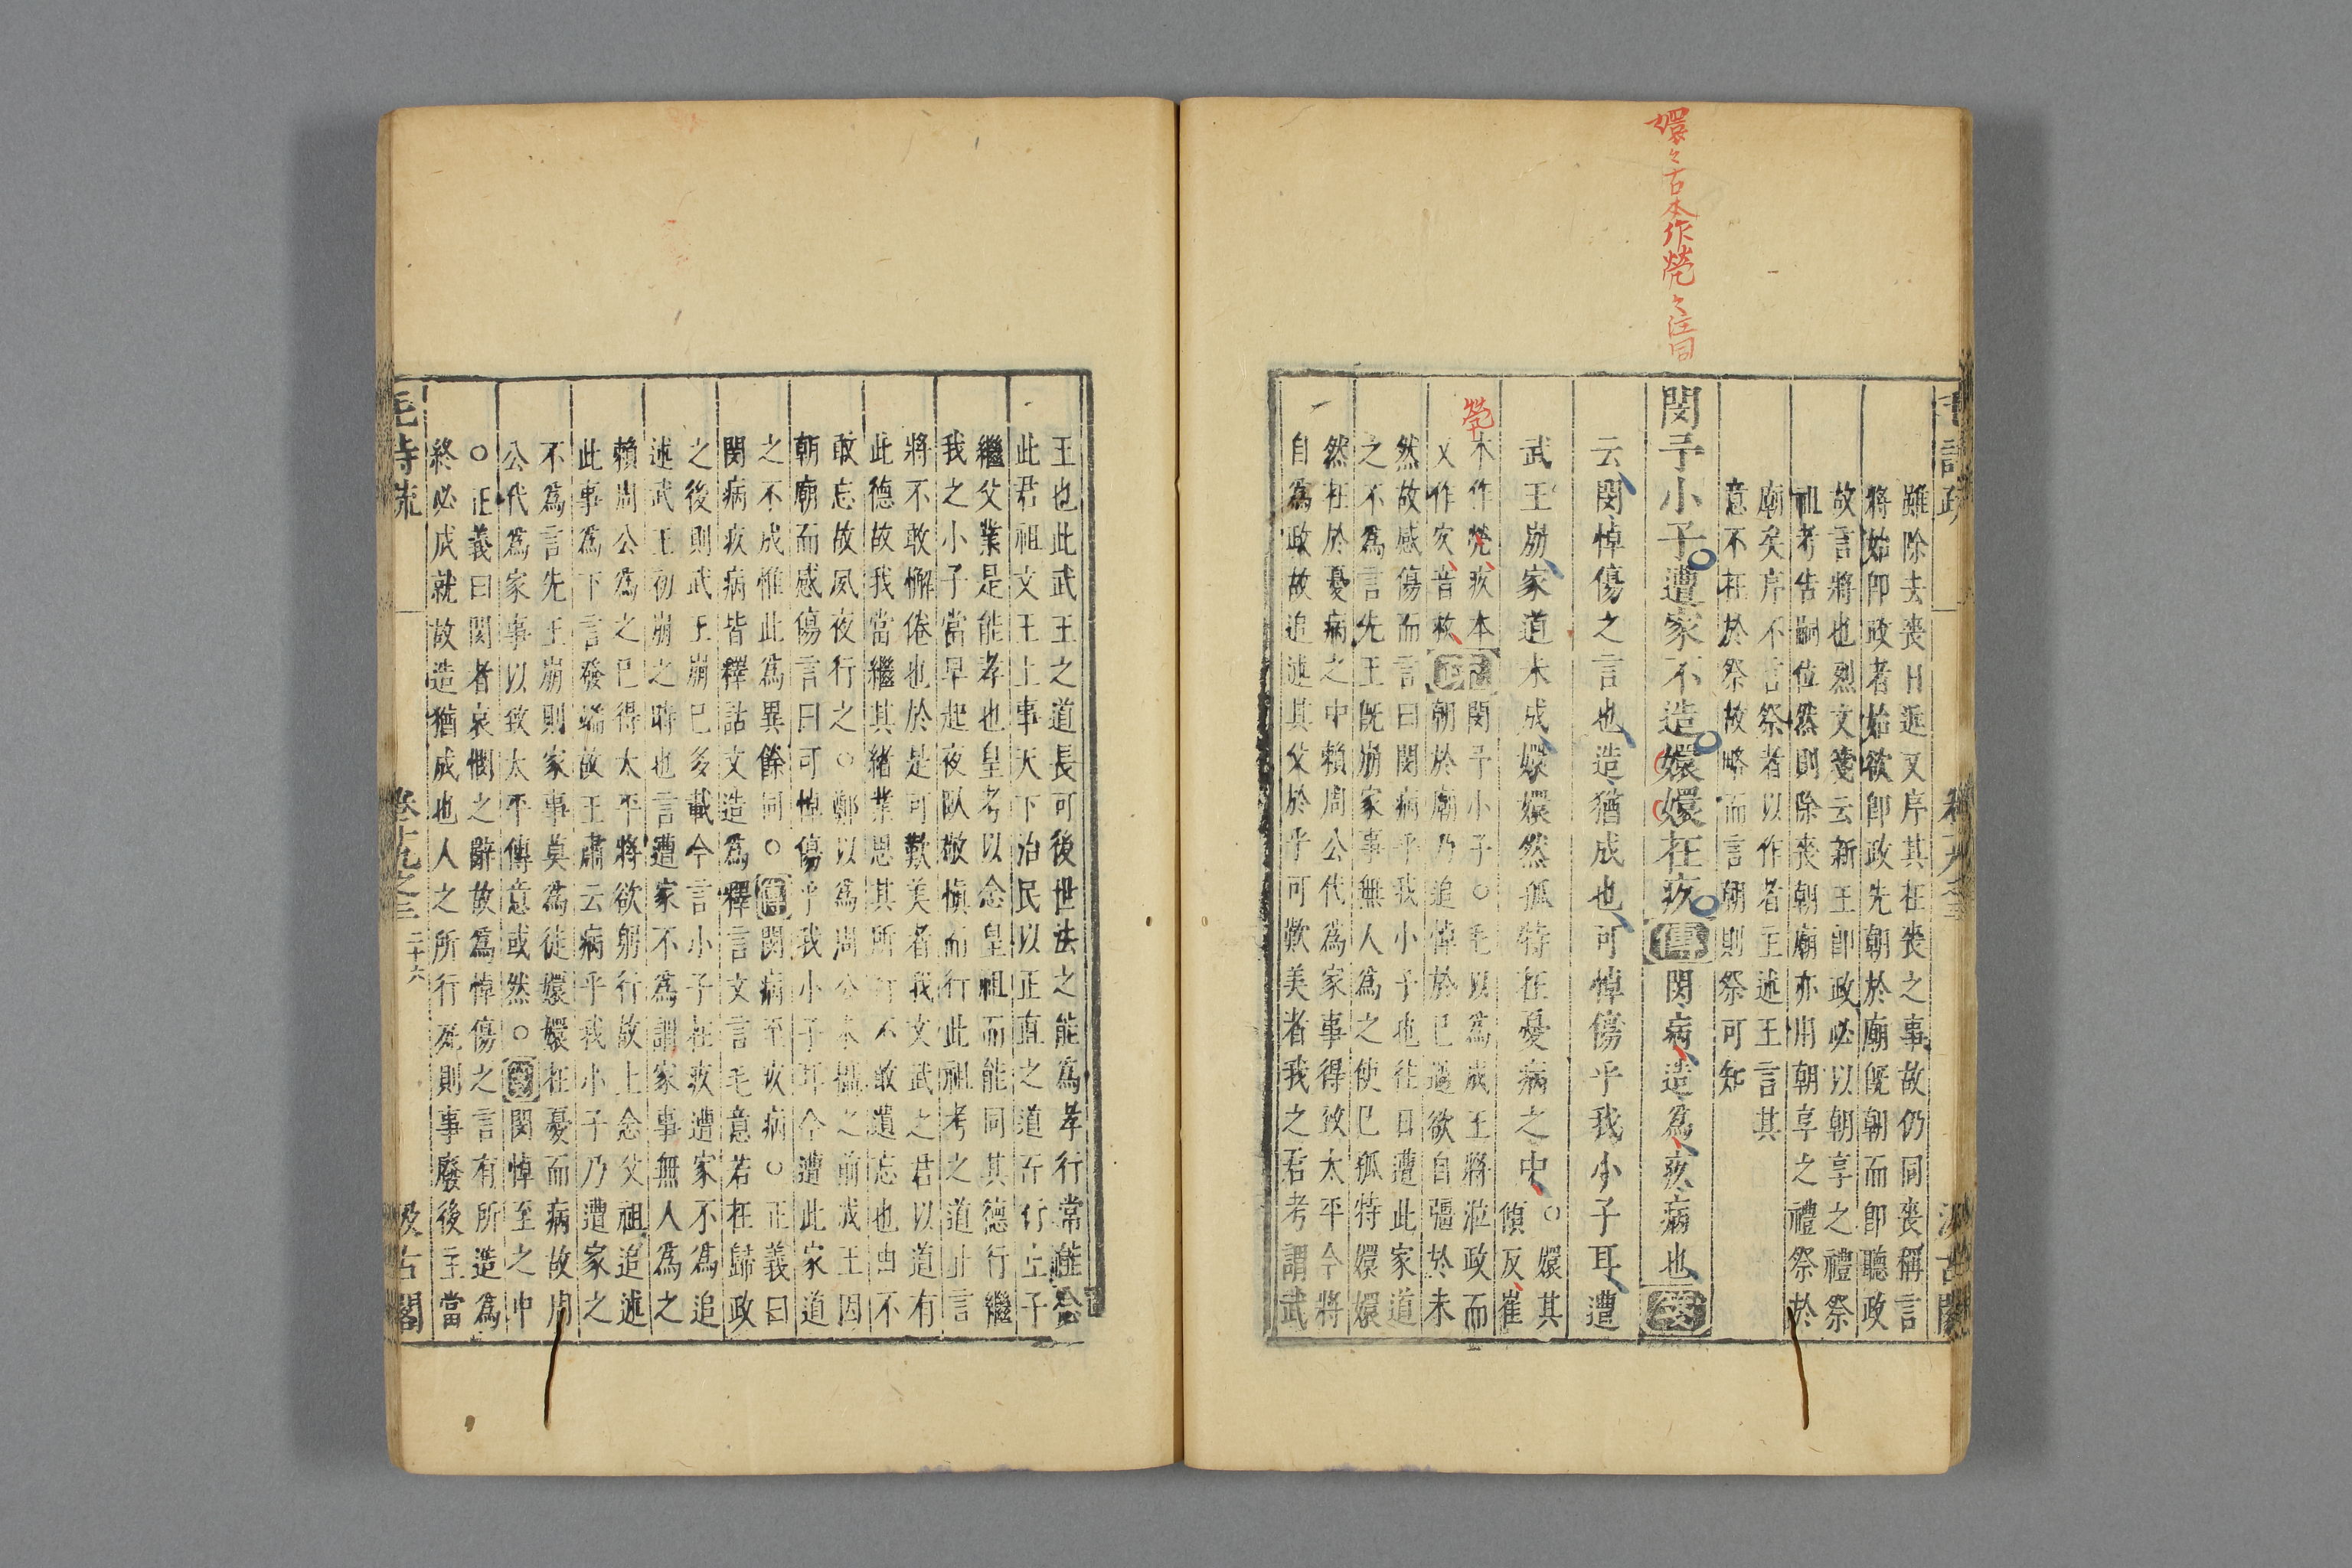 嬛〻古本作煢〻注同
雖除去喪日近又序其在喪之事故仍同喪稱言
將始卽政者始欲卽政先朝於廟旣朝而卽聽政
故言將也烈文箋云新王卽政必以朝享之禮祭
祖考告嗣位然則除喪朝廟亦用朝享之禮祭於
廟矣序不言祭者以作者主述王言其
意不在於祭故略而言朝則祭可知
閔予小子遭家不造嬛嬛在疚傳閔病造爲疚病也箋
云閔悼傷之言也造猶成也可悼傷乎我小子耳遭
武王崩家道未成嬛嬛然孤特在憂病之中○嬛其
傾反崔
煢
本作煢疚本
又作㝌音救
疏閔予小子○毛以爲成王將涖政而
正義朝於廟乃追悼於已過欲自彊於未
然故感傷而言曰閔病乎我小子也往日遭此家道
之不爲言先王旣崩家事無人爲之使已孤特嬛嬛
然在於憂病之中賴周公代爲家事得致太平今將
自爲政故追述其父於乎可歎美者我之君考謂武
王也此武王之道長可後世法之能爲孝行常能念
此君祖文王上事天下治民以正直之道而行止予
繼父業是能孝也皇考以念皇祖而能同其德行繼
我之小子當早起夜臥敬愼而行此祖考之道止言
將不敢懈倦也於是可歎美者我文武之君以道有
此德故我當繼其緒業思其所行不敢遺忘也由不
敢忘故夙夜行之○鄭以爲周公未攝之前成王因
朝廟而感傷言曰可悼傷乎我小子耳今遭此家道
之不成惟此爲異餘同○傳閔病至疚病○正義曰
閔病疚病皆釋詁文造爲釋言文言毛意若在歸政
之後則武王崩已多載今言小子在疚遭家不爲追
述武王初崩之時也言遭家不爲謂家事無人爲之
賴周公爲之已得太平將欲躬行故上念父祖追述
此事爲下言發端故王肅云病乎我小子乃遭家之
不爲言先王崩則家事莫爲徒嬛嬛在憂而病故周
公代爲家事以致太平傳意或然○箋閔悼至之中
○正義曰閔者哀憫之辭故爲悼傷之言有所造爲
終必成就故造猶成也人之所行死則事廢後主當
毛詩疏
卷十九之三
二十六
汲古閣